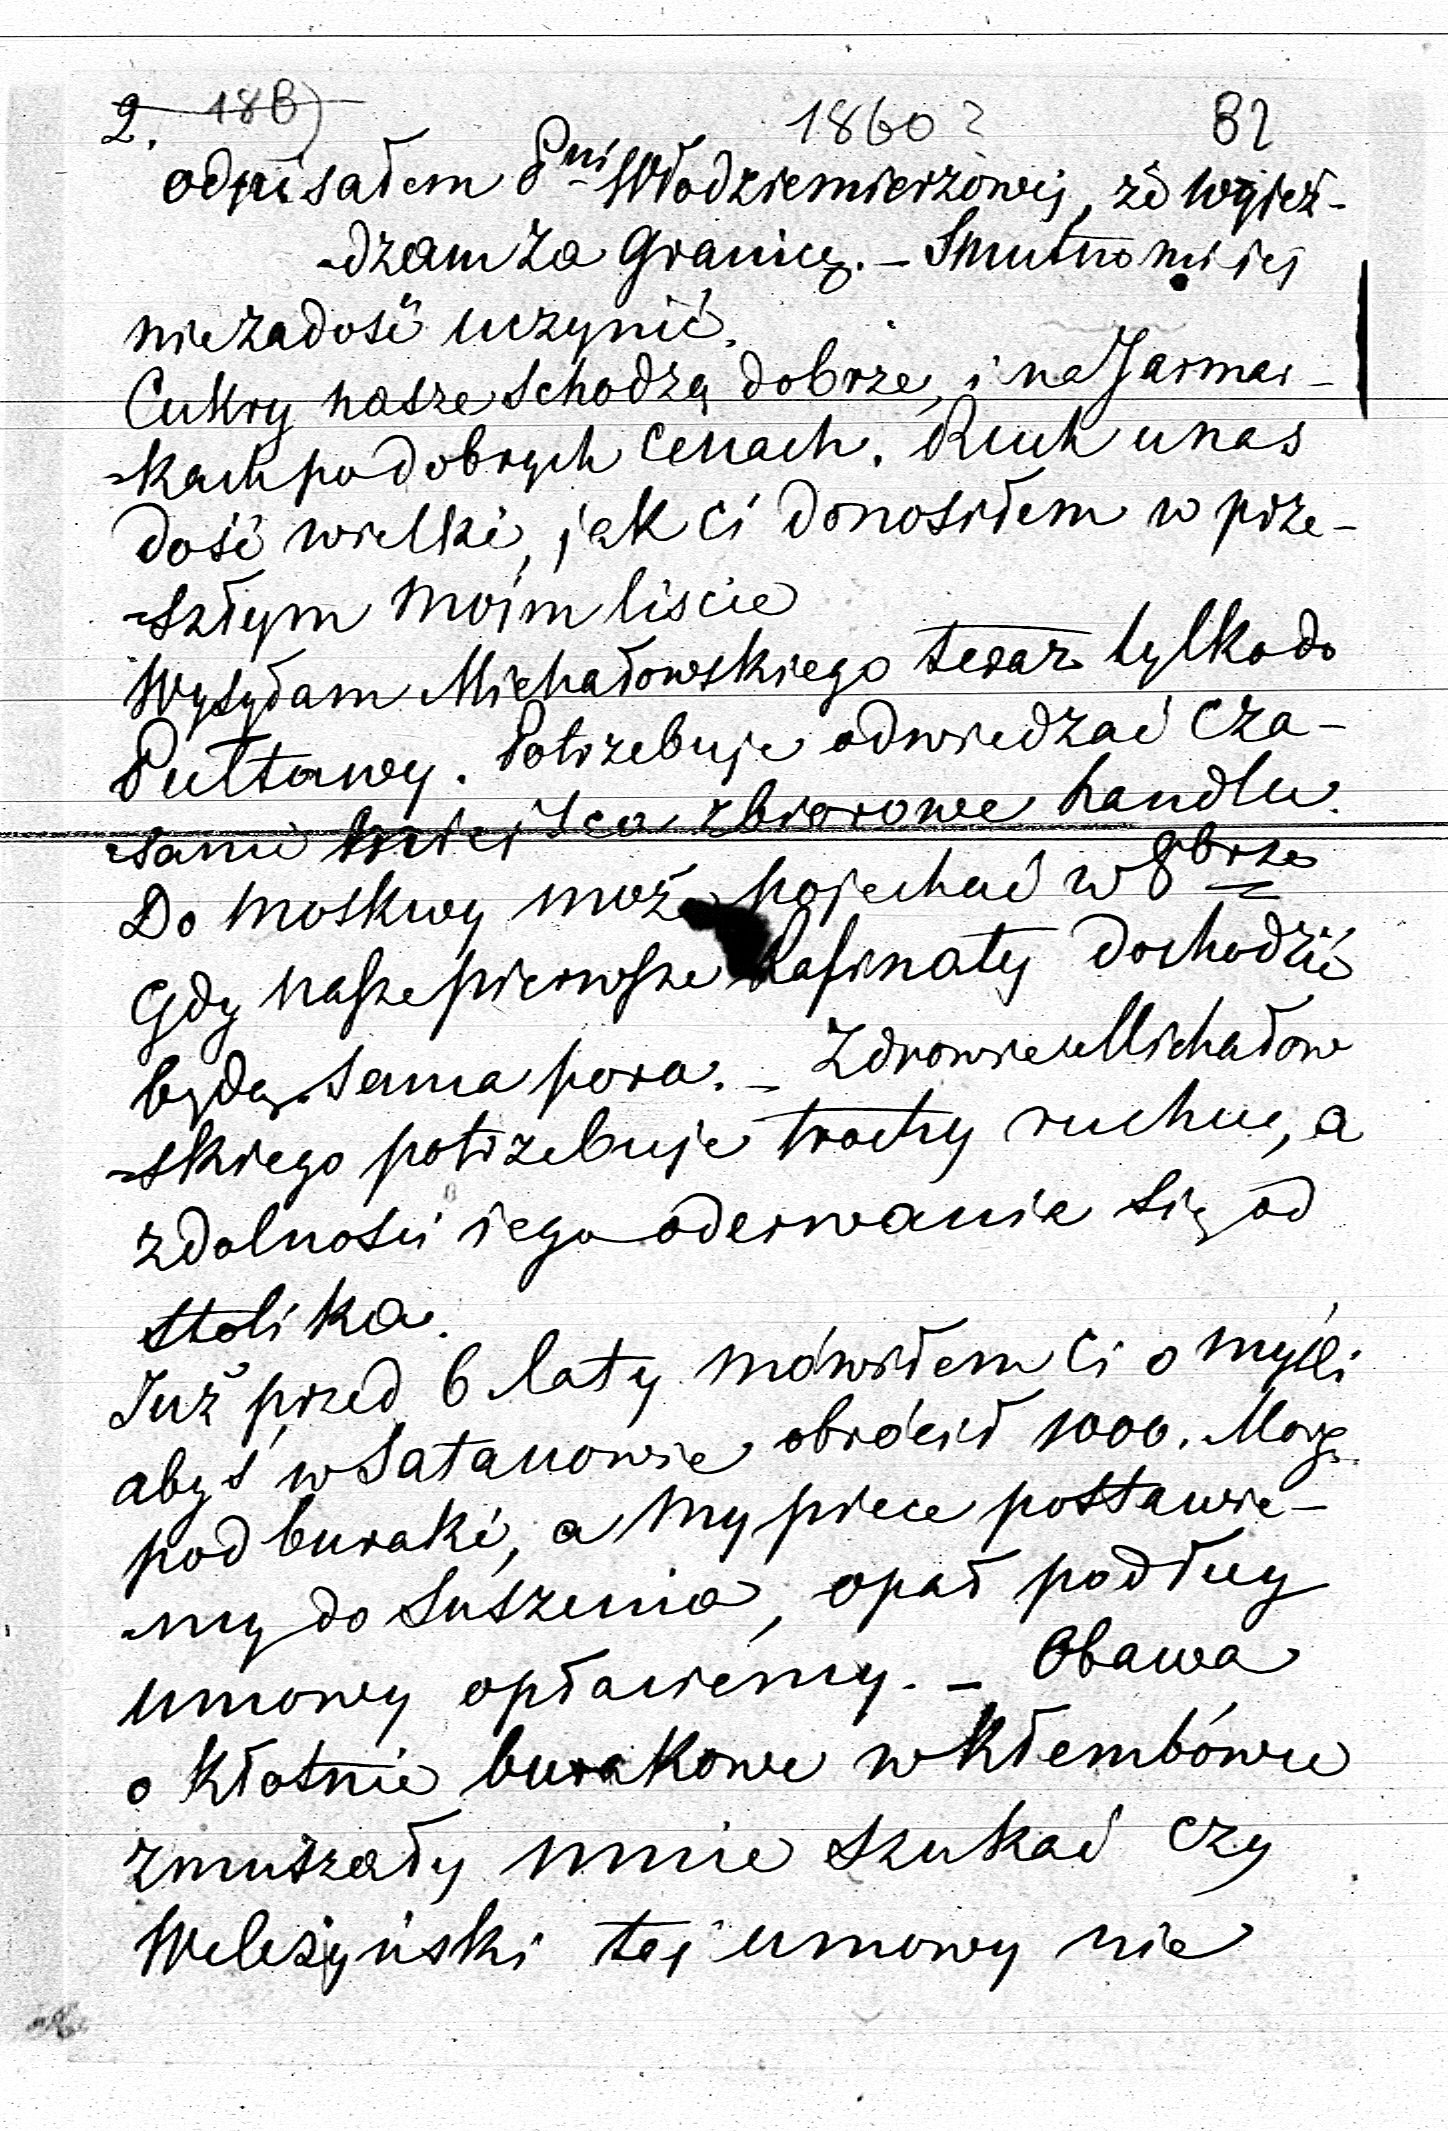 2. 18B) 1860? 82
odpisałem Pni Włodziemierzowej, że wyjeż-
-dzam za Granicę. - Smutno mi jej
nie zadość uczynić.
Cukry nasze schodzą dobrze, i na Jarmar-
-kach po dobrych cenach. Ruch u nas
dość wielki, jak Ci donosiłem w prze-
-szłym moim liście
Wysyłam Michałowskiego teraz tylko do
Pułtawy. Potrzebuje odwiedzać cza-
-sami miejsca zbiorowe handlu.
Do Moskwy może pojechać w 8brze
Gdy nasze pierwsze Rafinaty dochodzić
będą. sama pora. - Zdrowie Michałow
-skiego potrzebuje trochy ruchu, a
zdolności jego oderwania się od
stolika.
Już przed 6 laty mówiłem Ci o myśli
abyś w Satanowie obrócił 1000. Morg.
pod buraki, a my piece postawie-
-my do suszenia, opał podług
umowy opłaciemy. - Obawa
o kłotnie burakowe w Kłembówce
zmuszały mnie szukać czy
Weleżyński tej umowy nie